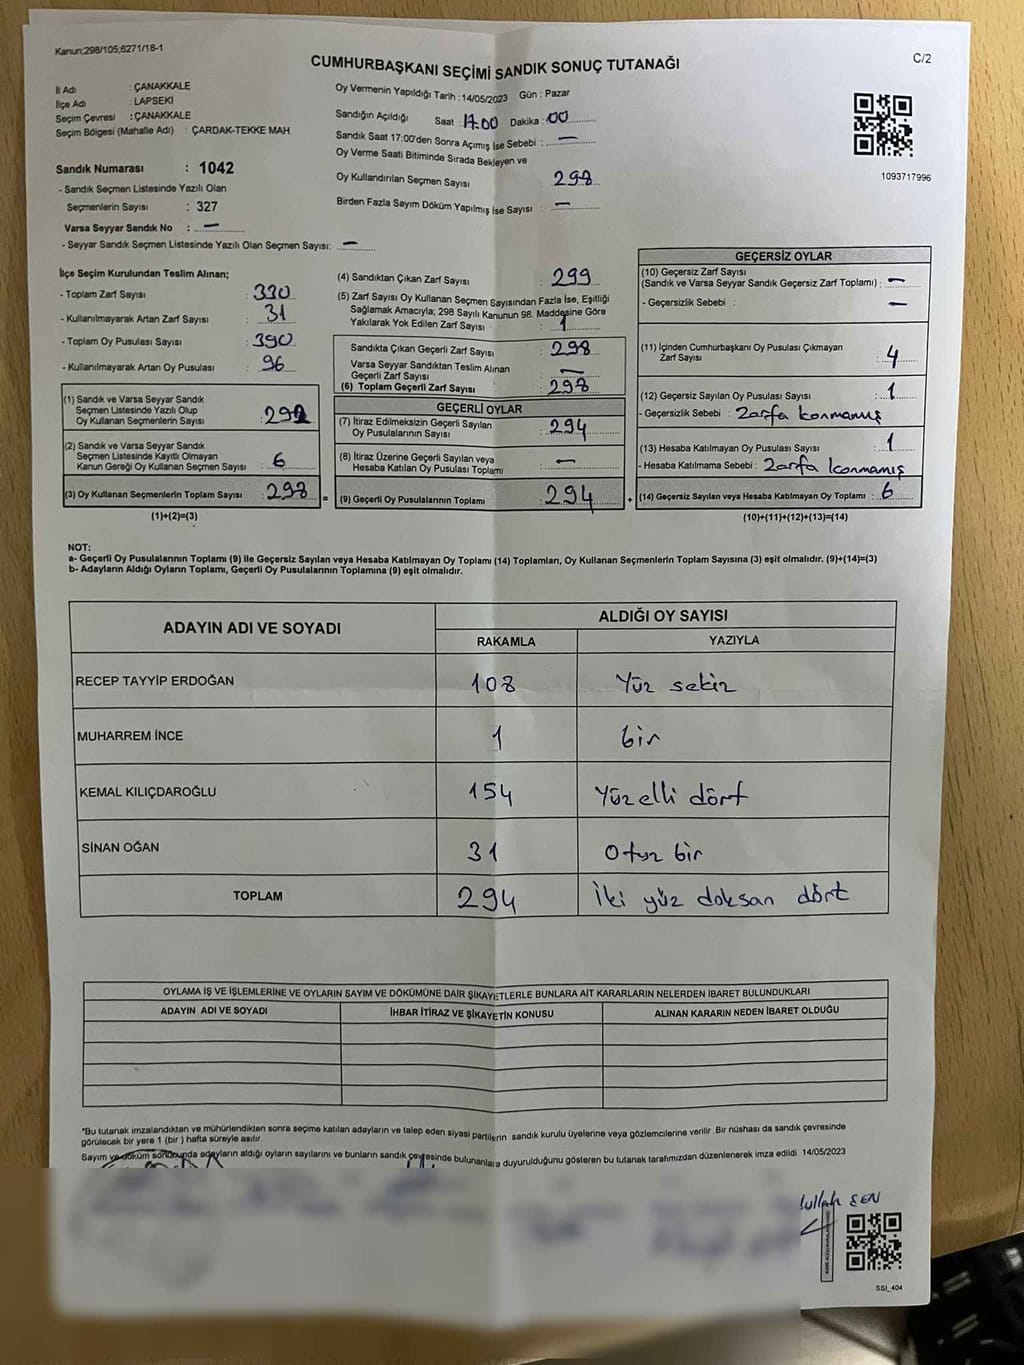 Kanun:298/105;6271/18-1
C/2
CUMHURBAŞKANI SEÇİMİ SANDIK SONUÇ TUTANAĞI
İl Adı : ÇANAKKALE
İlçe Adı : LAPSEKİ
Seçim Çevresi : ÇANAKKALE
Seçim Bölgesi (Mahalle Adı) : ÇARDAK-TEKKE MAH.
Sandık Numarası : 1042
- Sandık Seçmen Listesinde Yazılı Olan
Seçmenlerin Sayısı : 327
Varsa Seyyar Sandık No : —
- Seyyar Sandık Seçmen Listesinde Yazılı Olan Seçmen Sayısı: —
Oy Vermenin Yapıldığı Tarih : 14/05/2023 Gün : Pazar
Sandığın Açıldığı Saat : 17.00 Dakika : 00
Sandık Saat 17:00'den Sonra Açımış İse Sebebi : —
Oy Verme Saati Bitiminde Sırada Bekleyen ve
Oy Kullandırılan Seçmen Sayısı 298
Birden Fazla Sayım Döküm Yapılmış İse Sayısı : —
1093717996
İlçe Seçim Kurulundan Teslim Alınan;
- Toplam Zarf Sayısı : 330
- Kullanılmayarak Artan Zarf Sayısı : 31
- Toplam Oy Pusulası Sayısı : 390
- Kullanılmayarak Artan Oy Pusulası : 96
(1) Sandık ve Varsa Seyyar Sandık
Seçmen Listesinde Yazılı Olup
Oy Kullanan Seçmenlerin Sayısı : 292
(2) Sandık ve Varsa Seyyar Sandık
Seçmen Listesinde Kayıtlı Olmayan
Kanun Gereği Oy Kullanan Seçmen Sayısı : 6
(3) Oy Kullanan Seçmenlerin Toplam Sayısı : 298
(1)+(2)=(3)
(4) Sandıktan Çıkan Zarf Sayısı : 299
(5) Zarf Sayısı Oy Kullanan Seçmen Sayısından Fazla İse, Eşitliği
Sağlamak Amacıyla; 298 Sayılı Kanunun 98. Maddesine Göre
Yakılarak Yok Edilen Zarf Sayısı : 1
Sandıkta Çıkan Geçerli Zarf Sayısı : 298
Varsa Seyyar Sandıktan Teslim Alınan
Geçerli Zarf Sayısı : —
(6) Toplam Geçerli Zarf Sayısı : 298
GEÇERLİ OYLAR
(7) İtiraz Edilmeksizin Geçerli Sayılan
Oy Pusulalarının Sayısı : 294
(8) İtiraz Üzerine Geçerli Sayılan veya
Hesaba Katılan Oy Pusulası Toplamı : —
(9) Geçerli Oy Pusulalarının Toplamı : 294
GEÇERSİZ OYLAR
(10) Geçersiz Zarf Sayısı
(Sandık ve Varsa Seyyar Sandık Geçersiz Zarf Toplamı) : —
- Geçersizlik Sebebi : —
(11) İçinden Cumhurbaşkanı Oy Pusulası Çıkmayan
Zarf Sayısı : 4
(12) Geçersiz Sayılan Oy Pusulası Sayısı : 1
- Geçersizlik Sebebi : Zarfa konmamış
(13) Hesaba Katılmayan Oy Pusulası Sayısı : 1
- Hesaba Katılmama Sebebi : Zarfa konmamış
(14) Geçersiz Sayılan veya Hesaba Katılmayan Oy Toplamı : 6
(10)+(11)+(12)+(13)=(14)
NOT:
a- Geçerli Oy Pusulalarının Toplamı (9) ile Geçersiz Sayılan veya Hesaba Katılmayan Oy Toplamı (14) Toplamları, Oy Kullanan Seçmenlerin Toplam Sayısına (3) eşit olmalıdır. (9)+(14)=(3)
b- Adayların Aldığı Oyların Toplamı, Geçerli Oy Pusulalarının Toplamına (9) eşit olmalıdır.
ADAYIN ADI VE SOYADI ALDIĞI OY SAYISI
RAKAMLA YAZIYLA
RECEP TAYYİP ERDOĞAN 108 Yüz sekiz
MUHARREM İNCE 1 bir
KEMAL KILIÇDAROĞLU 154 Yüzelli dört
SİNAN OĞAN 31 Otuz bir
TOPLAM 294 İki yüz doksan dört
OYLAMA İŞ VE İŞLEMLERİNE VE OYLARIN SAYIM VE DÖKÜMÜNE DAİR ŞİKAYETLERLE BUNLARA AİT KARARLARIN NELERDEN İBARET BULUNDUKLARI
ADAYIN ADI VE SOYADI İHBAR İTİRAZ VE ŞİKAYETİN KONUSU ALINAN KARARIN NEDEN İBARET OLDUĞU
*Bu tutanak imzalandıktan ve mühürlendikten sonra seçime katılan adayların ve talep eden siyasi partilerin sandık kurulu üyelerine veya gözlemcilerine verilir. Bir nüshası da sandık çevresinde
görülecek bir yere 1 (bir) hafta süreyle asılır.
Sayım ve döküm sonucunda adayların aldığı oyların sayılarını ve bunların sandık çevresinde bulunanlara duyurulduğunu gösteren bu tutanak tarafımızdan düzenlenerek imza edildi. 14/05/2023
ŞEN
SSI_404